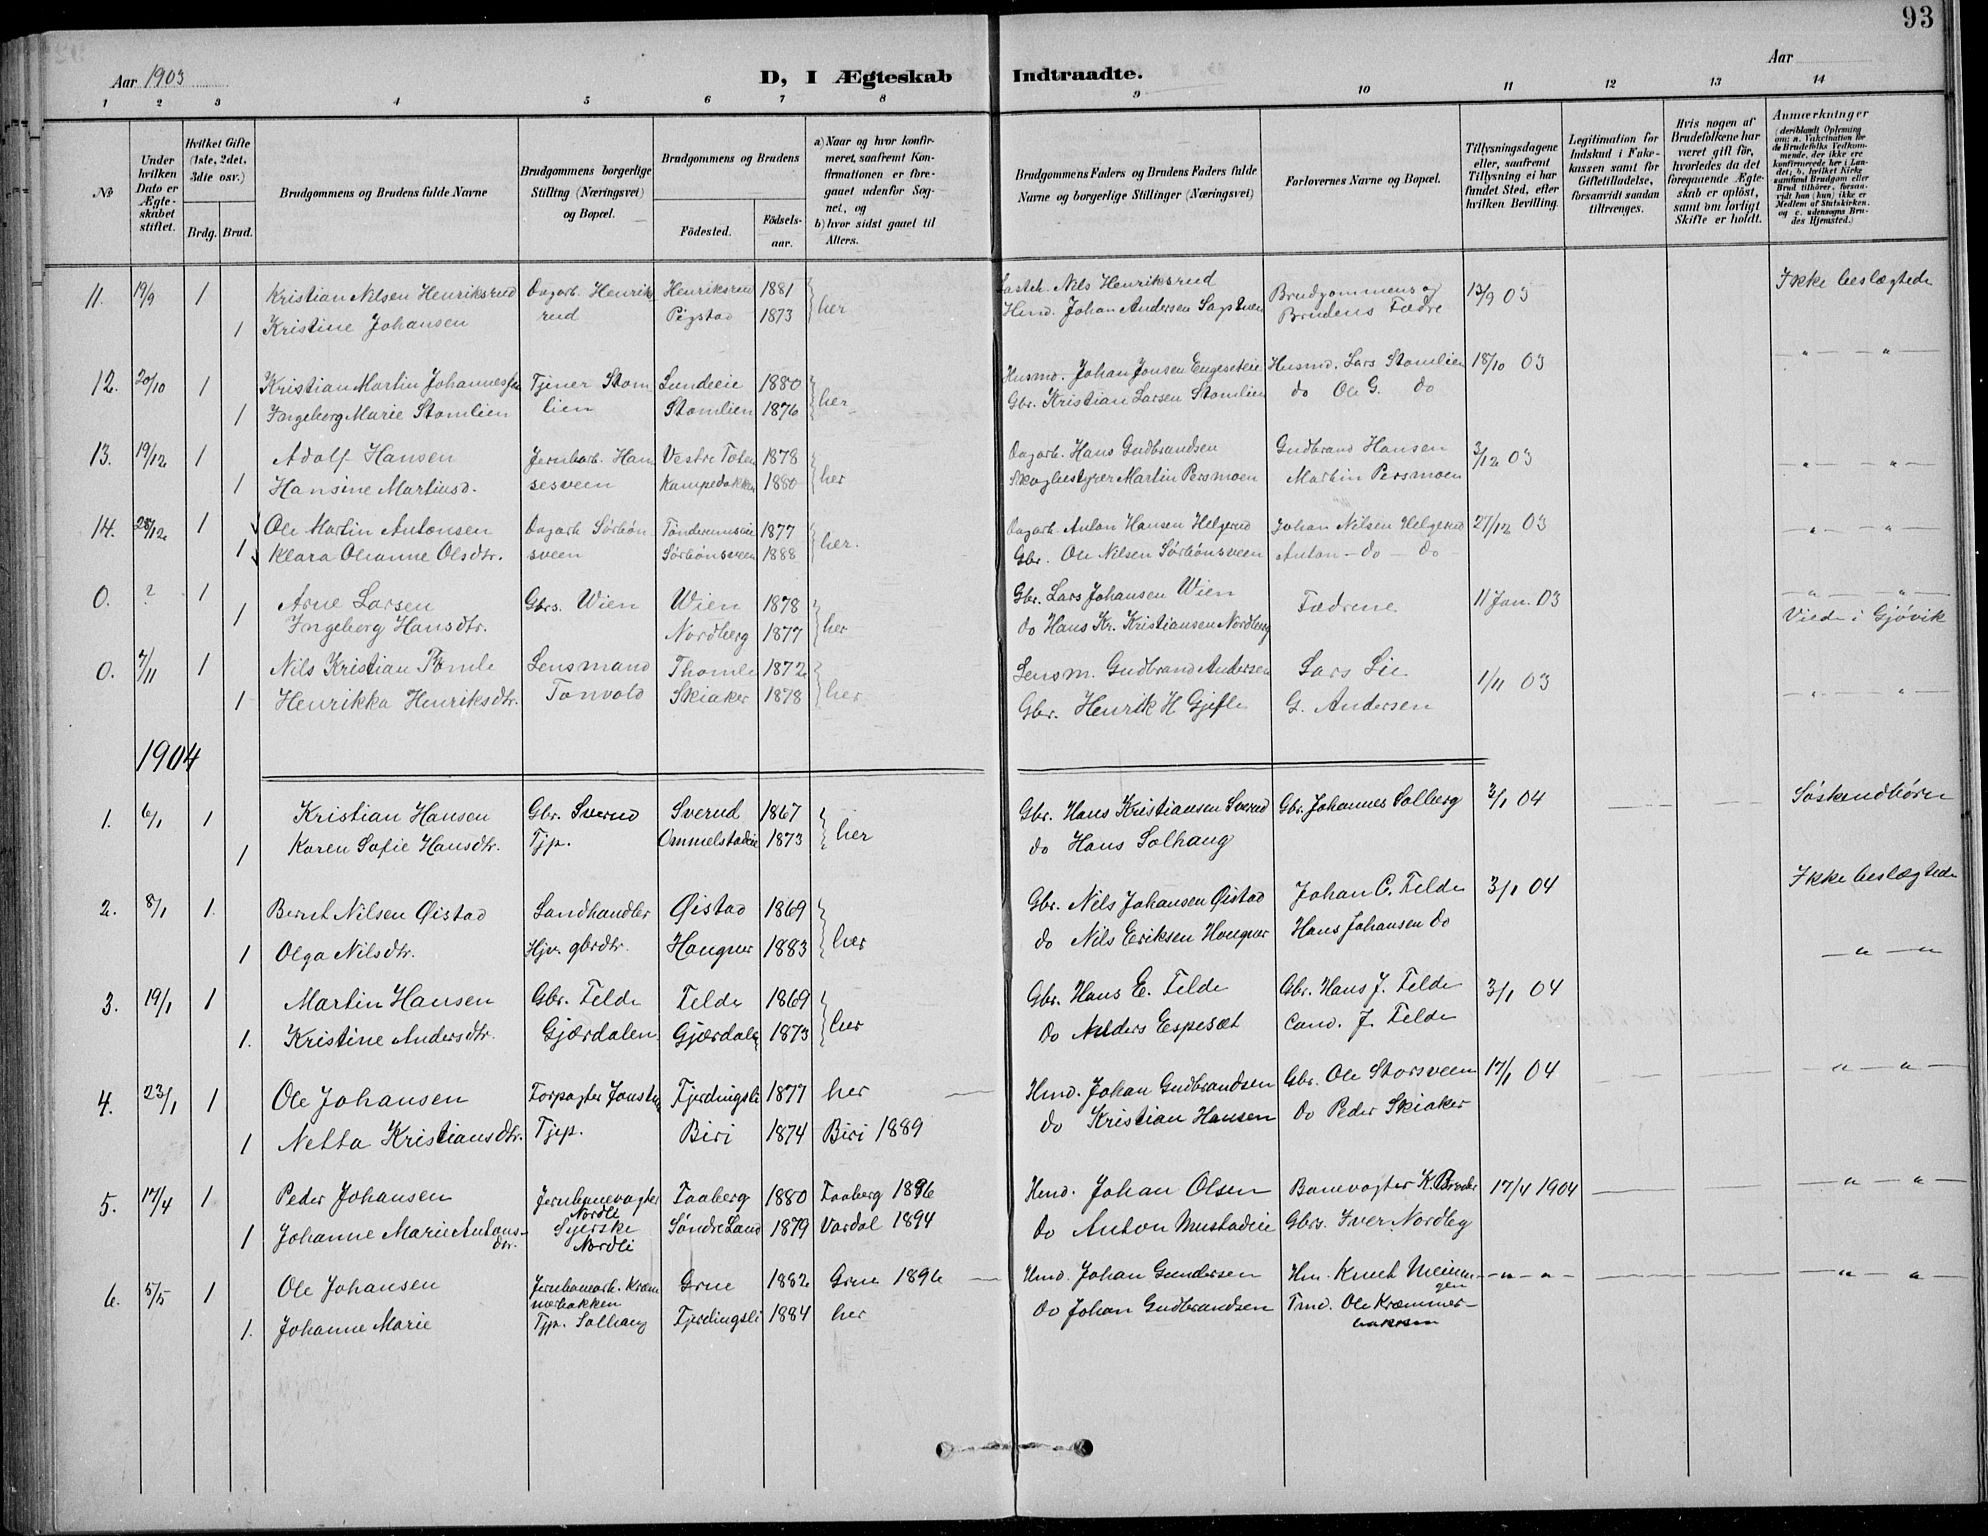 93
Aar 1903
D, I Ægteskab Indtraadte.
Aar
1 2 3 4 5 6 7 8 9 10 11 12 13 14
No
Under hvilken Dato er Ægteskabet stiftet.
Hvilket Gifte (1ste, 2det, 3die osv.)
Brdg. Brud.
Brudgommens og Brudens fulde Navne
Brudgommens borgerlige Stilling (Næringsvei) og Bopæl.
Brudgommens og Brudens
Födested.
Födselsaar.
a) Naar og hvor konfirmeret, saafremt Konfirmationen er foregaaet udenfor Sognet, og
b) hvor sidst gaaet til Alters.
Brudgommens Faders og Brudens Faders fulde Navne og borgerlige Stillinger (Næringsvei)
Forlovernes Navne og Bopæl.
Tillysningsdagene eller, saafremt Tillysning ei har fundet Sted, efter hvilken Bevilling.
Legitimation for Indskud i Enkekassen samt for Giftetilladelse, forsaavidt saadan tiltrænges.
Hvis nogen af Brudefolkene har været gift för, hvorledes da det foregaaende Ægteskab er oplöst, samt om lovligt Skifte er holdt.
Anmærkninger
(deriblandt Oplysning om: a. Vakcination for de Brudefolks Vedkommende, der ikke ere konfirmerede her i Landet; b. hvilket Kirkesamfund Brudgom eller Brud tilhörer, forsaavidt han (hun) ikke er Medlem af Statskirken, og c. udensogns Brudes Hjemsted.)
11. 19/9 1 Kristian Nilsen Henriksrud Dagarb. Henriksrud Henriksrud 1881 her Nils Henriksrud Brudgommens og 13/9 03 Ikke beslægtede
1 Kristine Johansen Pigstad 1873 Johan Andersen Brudens Fædre
12. 20/10 1 Kristian Martin Johannessen Tjener Stomlien Lundeie 1880 her Husmd. Johan Jonsen Engeseteie Husmd. Lars Stomlien 18/10 03 " "
1 Ingeborg Marie Stomlien Stomlien 1876 Gbr. Kristian Larsen Stomlien do Ole G. do
13. 19/12 1 Adolf Hansen Jernbarb. Hansesveen Vestre Toten 1878 her Dagarb. Hans Gudbrandsen Gudbrand Hansen 3/12 03 " "
1 Hansine Martinsd. Kampebakken 1880 Skogbestyrer Martin Persmoen Martin Persmoen
14. 28/12 1 Ole Martin Antonsen Dagarb Sørbønsveen 1877 her. Dagarb. Anton Hansen Helgerud Johan Nilsen Helgerud 27/12 03 " "
1 Klara Oleanne Olsdtr. Sørbønsveen 1888 Gbr. Ole Nilsen Sørbønsveen Anton - do - do -
0. ? 1 Arne Larsen Gbrs. Wien Wien 1878 her Gbr. Lars Johansen Wien Fædrene 11 Jan. 03 " "
1 Ingeborg Hansdtr. Nordberg 1877 do Hans Kr. Kristiansen Nordberg Viede i Gjøvik
0. 7/11 1 Nils Kristian Tomle Lensmand Tonvold Thomle 1872 her Lensm. Gudbrand Andersen Lars Lie 1/11 03
1 Henrikka Henriksdtr. Skiaker 1878 Gbr. Henrik H. Gjefle G. Andersen " "
1904
1. 6/1 1 Kristian Hansen Gbr. Sverud Sverud 1867 her Gbr. Hans Kristiansen Sverud Gbr. Johannes Solberg 3/1 04 Søskendbørn
1 Karen Sofie Hansdtr. Tjp. Ommelstadeie 1873 do Hans Solhaug
2. 8/1 1. Bernt Nilsen Øistad Landhandler Øistad 1869 her Gbr. Nils Johansen Øistad Johan C. Felde 3/1 04 Ikke beslægtede
1 Olga Nilsdtr. Hjv. gbrdtr. Haugner 1883 do Nils Eriksen Hougner Hans Johansen do
3. 19/1 1 Martin Hansen Gbr. Felde Felde 1869 her Gbr. Hans E. Felde Gbr. Hans J. Felde 3/1 04 " "
1. Kristine Andersdtr. Gjærdalen Gjærdalen 1873 Do Anders Espesæt Cand. J. Felde
4. 23/1 1 Ole Johansen Forpagter Fjerdingsli 1877 her Hmd. Johan Gudbrandsen Gbr. Ole Storsveen 17/1 04 " "
1 Netta Kristiansdtr. Tjep. Biri 1874 Biri 1889 do Kristian Hansen Do Peder Skiaker
5. 17/4 1 Peder Johansen Jernbanevogter Nordli Faaberg 1880 Faaberg 1896 Hmd. Johan Olsen Banevogter K. 17/4 1904 " "
1 Johanne Marie Antonsdtr. Syerske Nordli Søndre Land 1879 Vardal 1894 Do Anton Mustadeie Gbrs. Iver Nordleg
6. 5/5 1 Ole Johansen Jernbanearb. Kræmmerbakken Grue 1882 Grue 1896 Hmd. Johan Gundersen Hm. Knut " " " "
1. Johanne Marie Tjp. Solhaug Fjerdingsli 1884 her do Johan Gudbrandsen Ole Kræmmerbakken